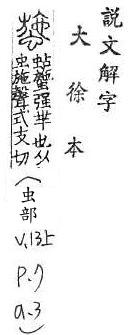 說文解字
大徐本
蛅䗐强羋也从
虫施聲式支切
(虫部
v.13上
p.7
a.3)